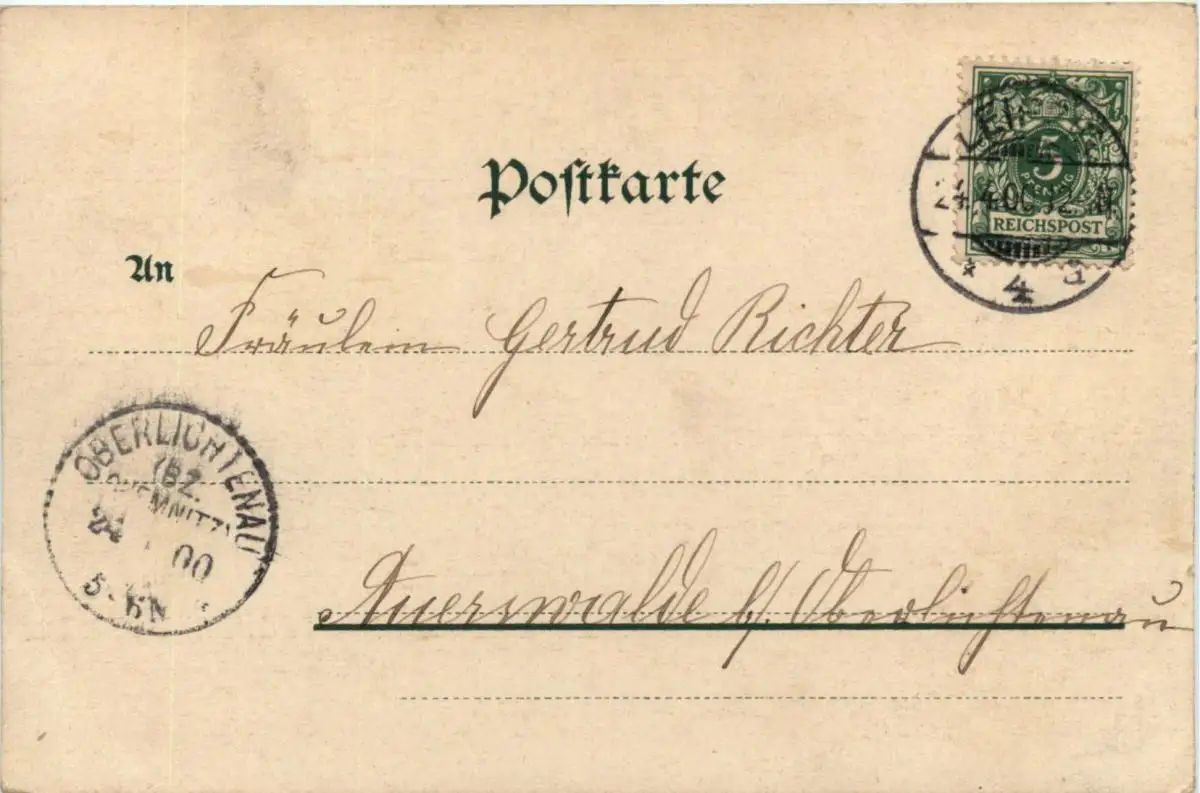 Postkarte
5
PFENNIG
REICHSPOST
LEIPZIG
24.4.00.12
4
a
An
Fräulein Gertrud Richter
OBERLICHTENAU
(BZ.
CHEMNITZ)
24 00
5-6N
Auerswalde b/ Oberlichtenau